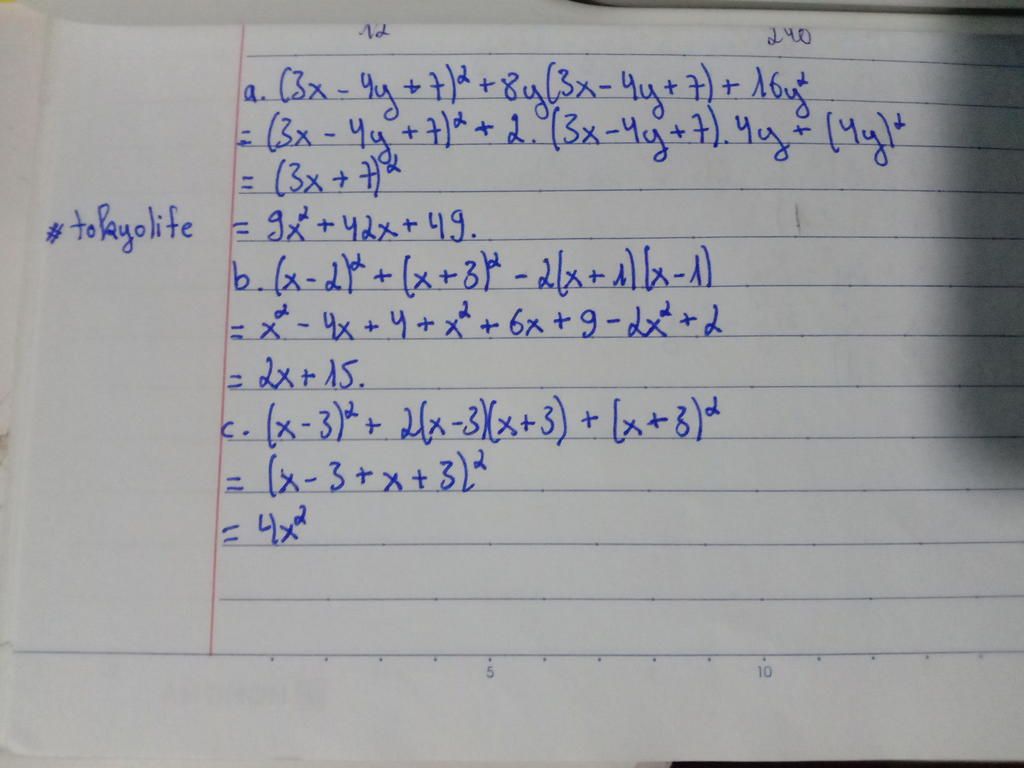 12 240
a. (3x - 4y + 7)² + 8y(3x - 4y + 7) + 16y²
= (3x - 4y + 7)² + 2. (3x - 4y + 7). 4y + (4y)²
= (3x + 7)²
#tokyolife
= 9x² + 42x + 49.
b. (x - 2)² + (x + 3)² - 2(x + 1)(x - 1)
= x² - 4x + 4 + x² + 6x + 9 - 2x² + 2
= 2x + 15.
c. (x - 3)² + 2(x - 3)(x + 3) + (x + 3)²
= (x - 3 + x + 3)²
= 4x²
5 10